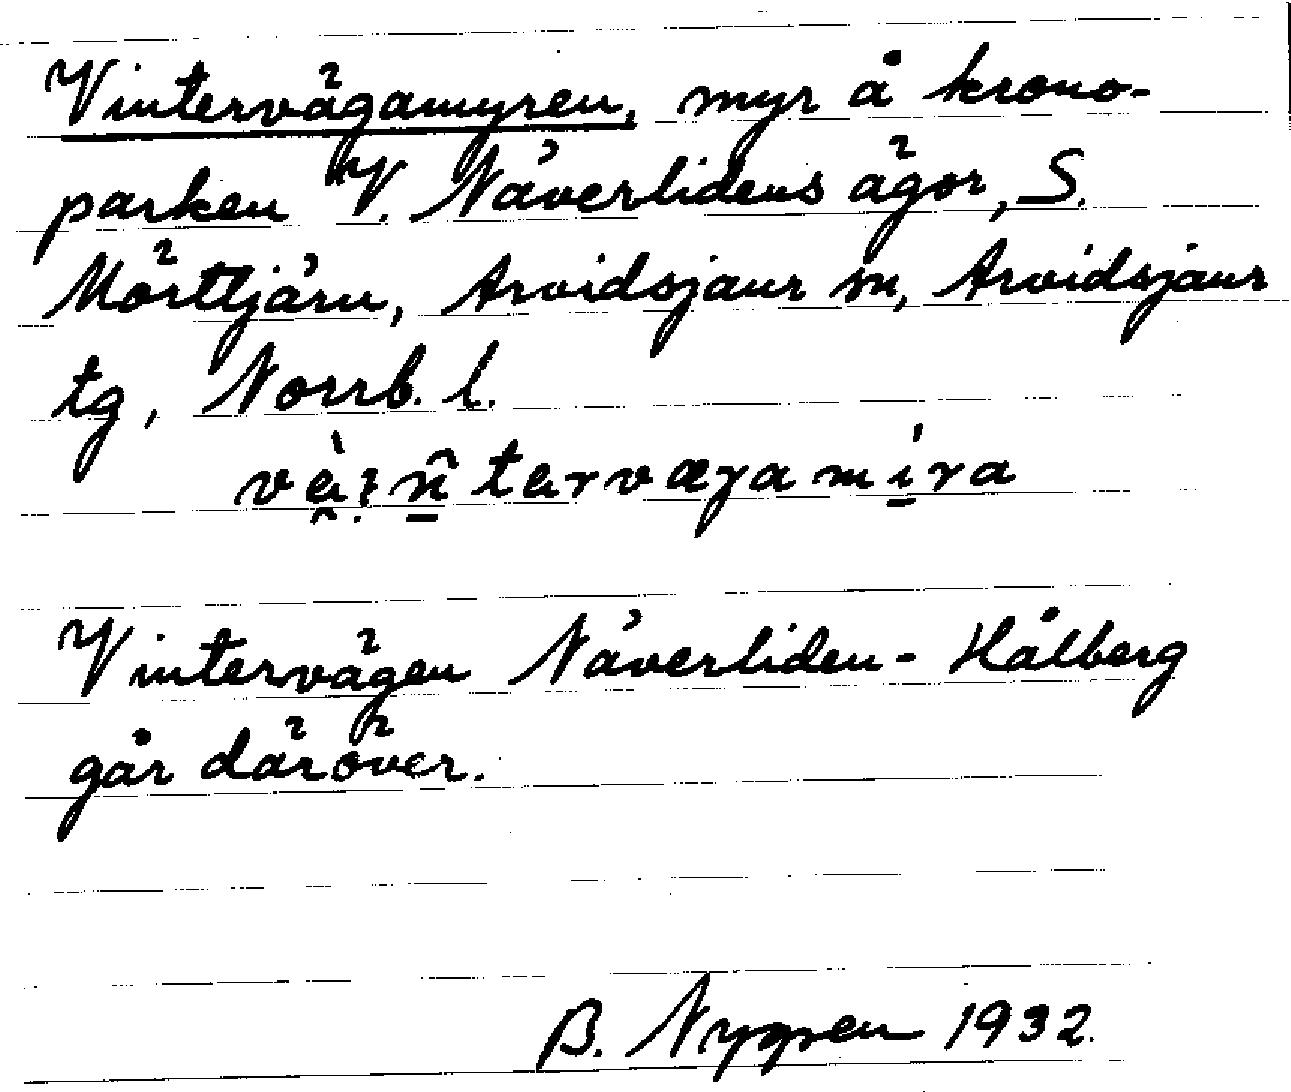 Vintervägamyren, myr å krono-
parken V. Näverlidens ägor, S.
Mörttjärn, Arvidsjaur sn, Arvidsjaur
tg, Norrb. l.
Vintervägen Näverliden - Hålberg
går däröver.
B. Nygren 1932.